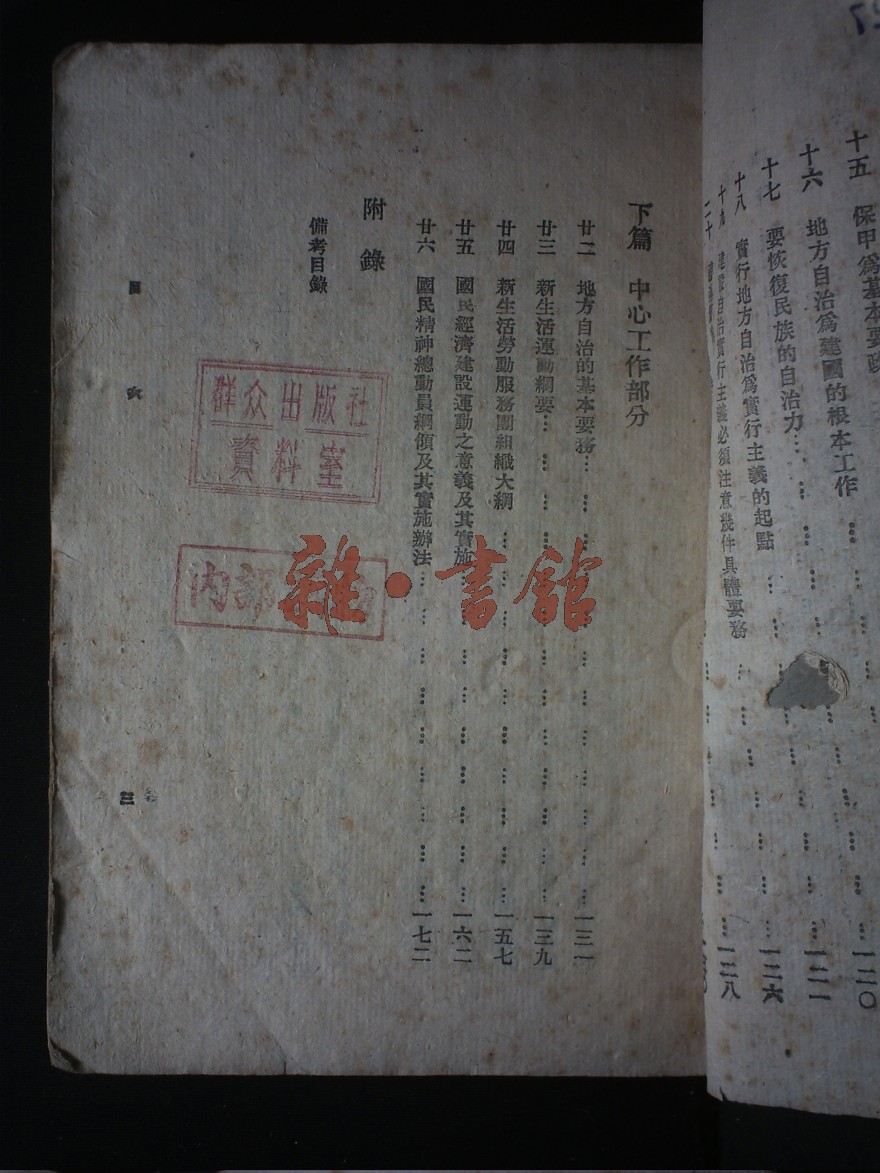 十五　保甲爲基本要政
十六　地方自治爲建國的根本工作　……一二〇
十七　要恢復民族的自治力……一二一
十八　實行地方自治爲實行主義的起點……一二六
十九　建設自治實行主義必須注意幾件具體要務……一二八
二十
下篇　中心工作部分
廿二　地方自治的基本要務……一三一
廿三　新生活運動綱要……一三九
廿四　新生活勞動服務團組織大綱……一五七
廿五　國民經濟建設運動之意義及其實施……一六二
廿六　國民精神總動員綱領及其實施辦法……一七二
附錄
備考目錄
三
群众出版社
資料室
内部
雜·書館
27